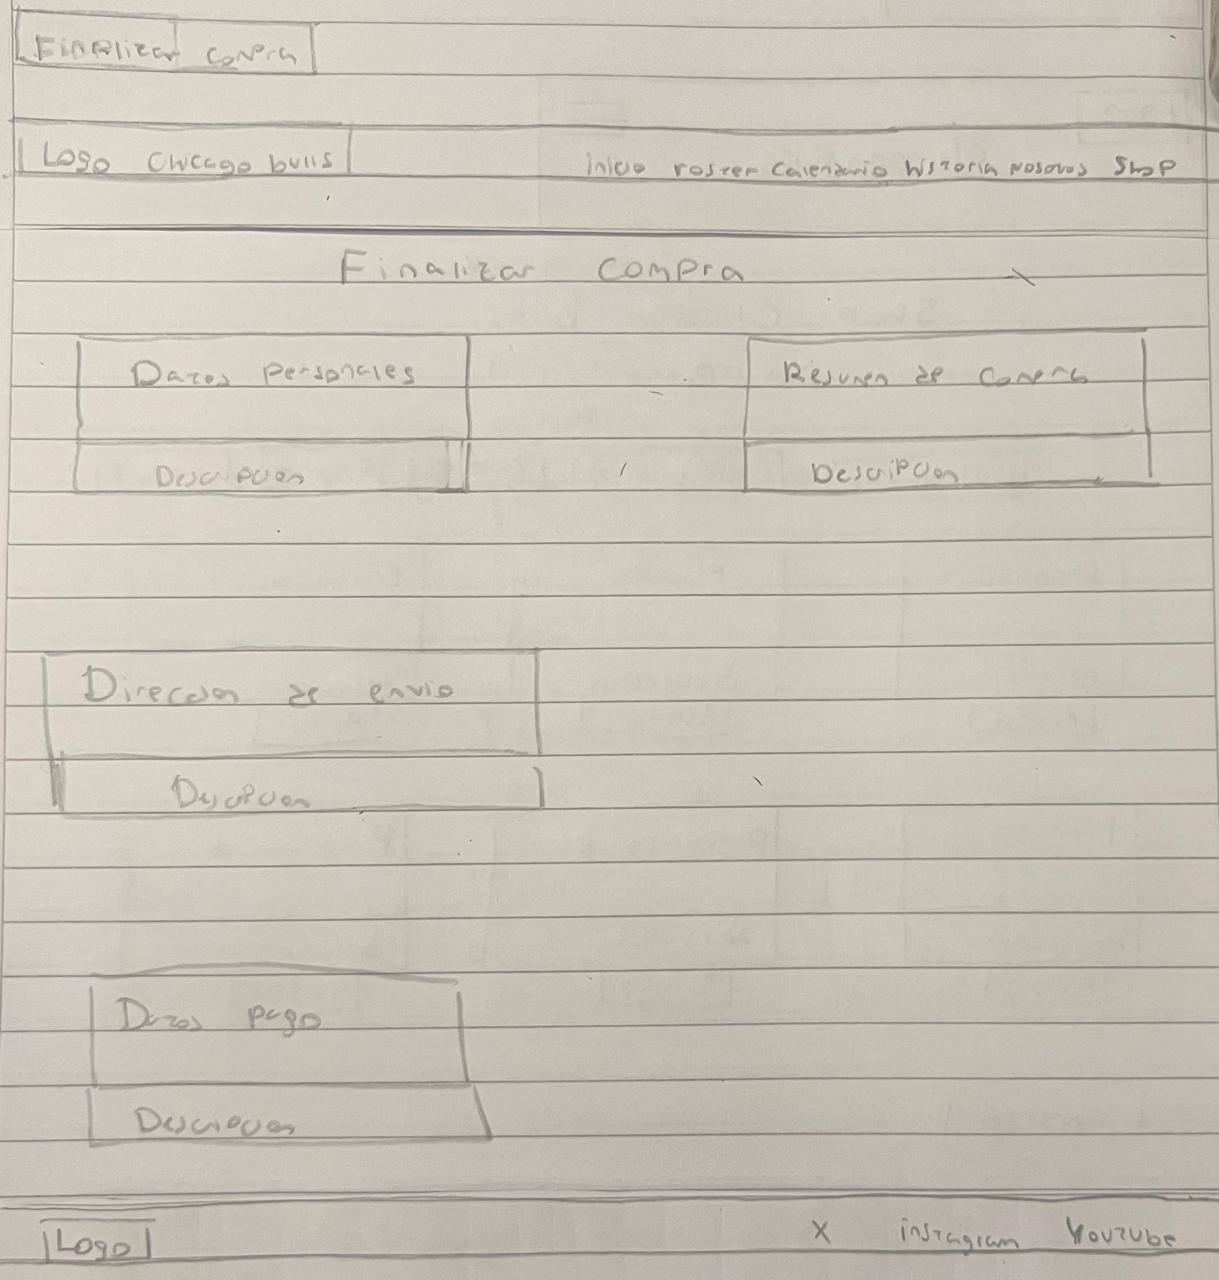 Finalizar compra
Logo Chicago bulls
inicio roster calendario historia nosotros Shop
Finalizar compra
Datos personales
Resumen de compra
Descripcion
Descripcion
Direccion de envio
Descripcion
Datos pago
Descripcion
Logo
X instagram Youtube